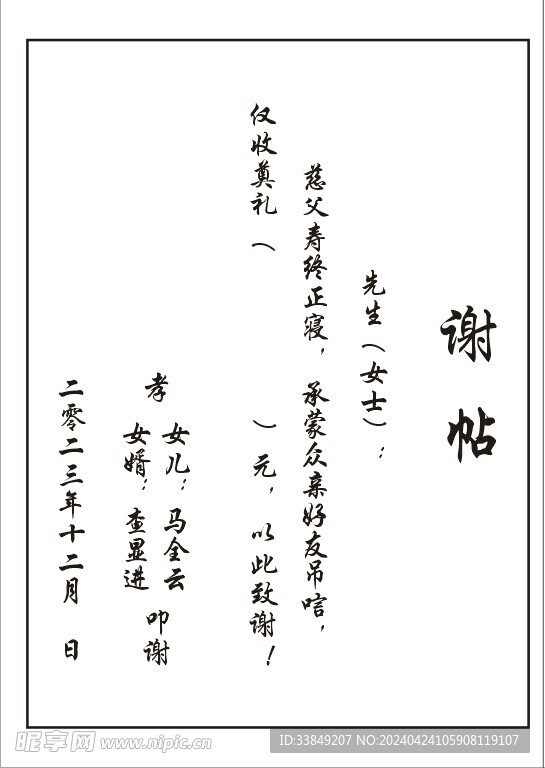 谢帖
先生（女士）：
慈父寿终正寝，承蒙众亲好友吊唁，
仅收奠礼（ ）元，以此致谢！
孝
女儿：马全云
女婿：查显进
叩谢
二零二三年十二月 日
昵享网 www.nipic.cn
ID:33849207 NO:20240424105908119107